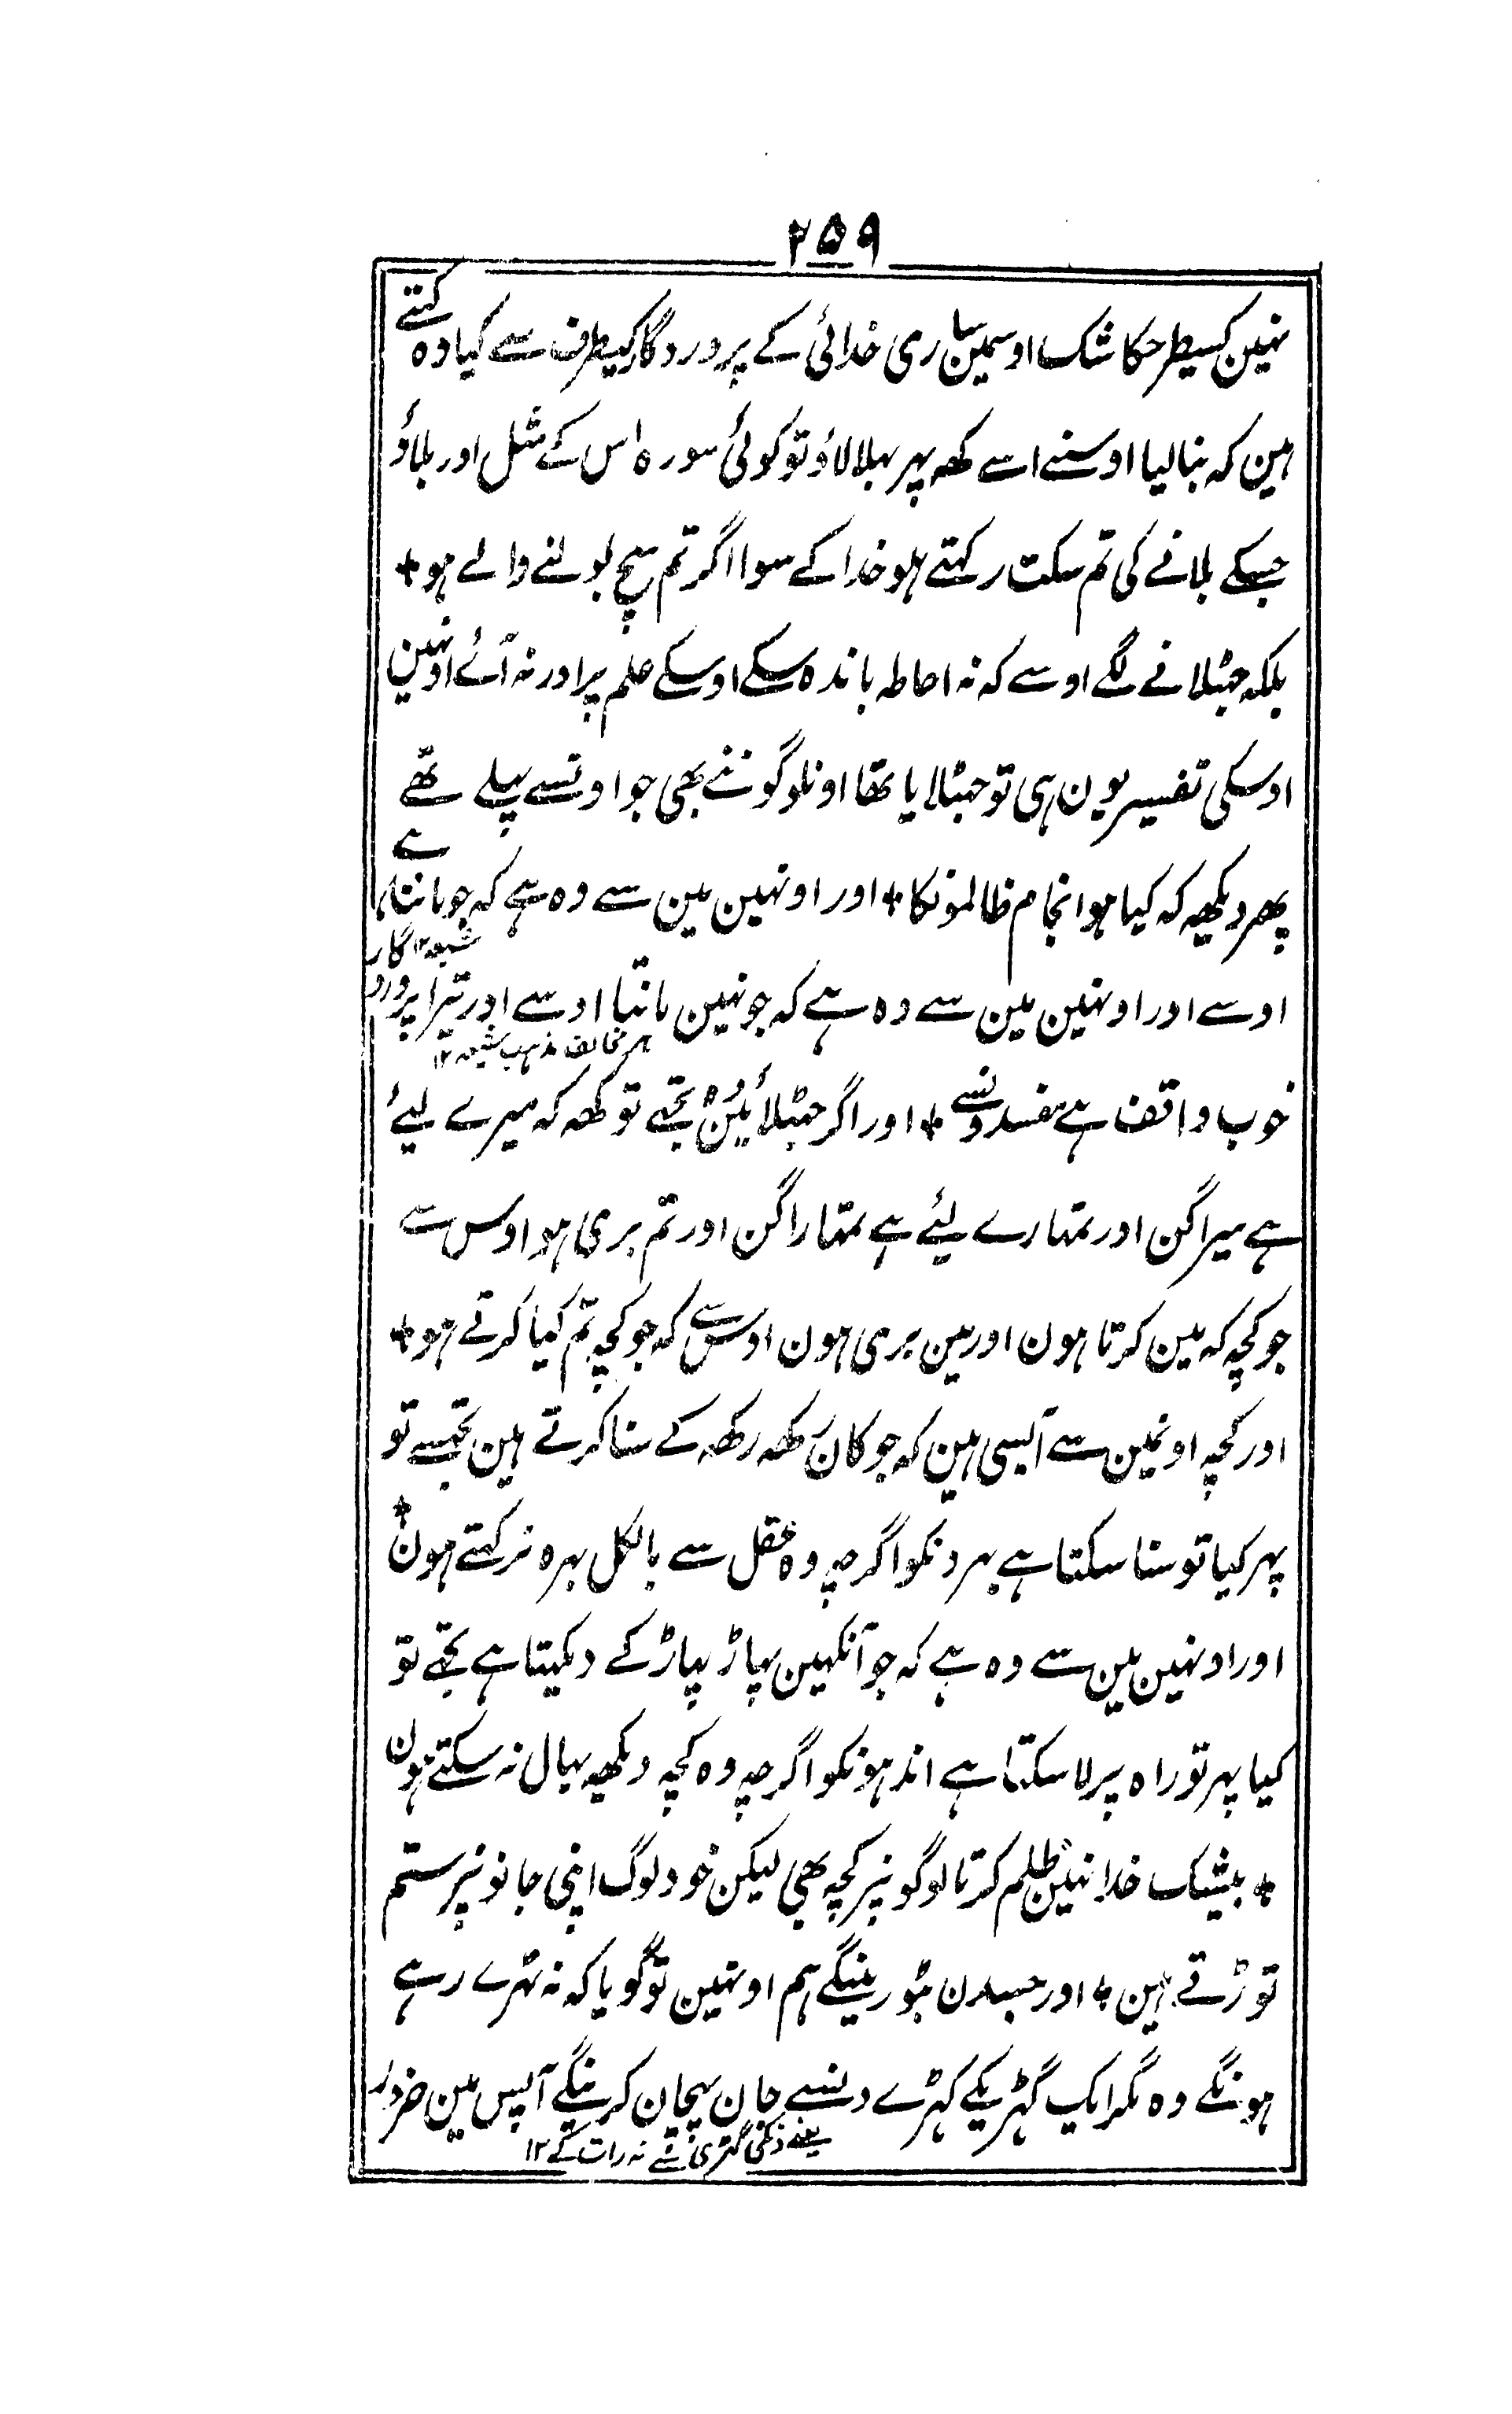 ۲۵۹
نہین کسیطرحکا شک اوسمین ساری خدائی کے پروردگار کیطرف سے کیا وہ کہتے
ہین کہ بنا لیا اوسنے اسے کھہ پہر بہلا لاؤ تو کوئی سورہ اس کے مثل اور بلاؤ
جسکے بلانے کی تم سکت رکہتے ہو خدا کے سوا اگر تم سچ بولنے والے ہو +
بلکہ جہٹلانے لگے اوسے کہ نہ احاطہ باندہ سکے اوسکے علم پر اور نہ آئے اونہین
اوسکی تفسیر یون ہی تو جہٹلایا تھا اونلوگو ننے بھی جو اونسے پہلے تھے
پھر دیکھہ کہ کیا ہوا انجام ظالمونکا + اور اونہین مین سے وہ ہے کہ جو مانتا ہے
شیعہ ۱۲
اوسے اور اونہین مین سے وہ ہے کہ جو نہین مانتا اوسے اور تیرا پروردگار
ہر مخالف مذہب شیعہ ۱۲
خوب واقف ہے مفسدونسے + اور اگر جہٹلائین وہ تجھے تو کھہ کہ میرے لیئے
ہے میرا گن اور تمہارے لیئے ہے تمہارا گن اور تم بری ہو اوس سے
جو کچہ کہ مین کرتا ہون اور مین بری ہون اوس سے کہ جو کچہ تم کیا کرتے ہو +
اور کچہ اونمین سے ایسی ہین کہ جو کان رکھہ رکھہ کے سنا کرتے ہین تجہسے تو
پہر کیا تو سنا سکتا ہے بہرونکو اگرچہ وہ عقل سے بالکل بہرہ نرکہتے ہون +
اور اونہین مین سے وہ ہے کہ جو آنکہین پہاڑ پہاڑ کے دیکہتا ہے تجہے تو
کیا پہر تو راہ پر لا سکتا ہے اندہونکو اگرچہ وہ کچہ دیکھہ بہال نہ سکتے ہون
+ بیشک خدا نہین ظلم کرتا لوگو نپر کچہ بھی لیکن خود لوگ اپنی جانونپر ستم
توڑتے ہین + اور جسدن بٹورینگے ہم اونہین تو گویا کہ نہ ٹہرے رہے
ہونگے وہ مگر ایک گہڑیکے کہڑے دنسے جان پہچان کرینگے آپس مین ضرور
یعنے دنکی گہڑی تھے نہ رات کے ۱۲